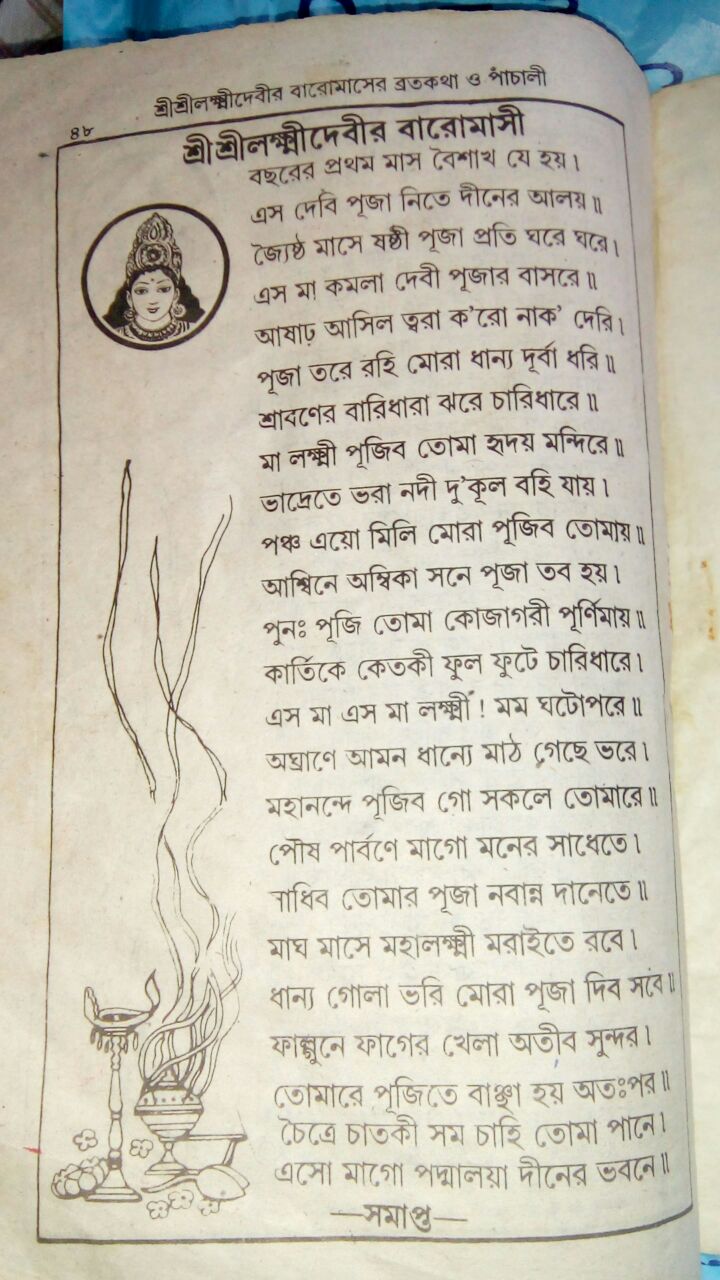 শ্রীশ্রীলক্ষ্মীদেবীর বারোমাসের ব্রতকথা ও পাঁচালী
৪৮
শ্রীশ্রীলক্ষ্মীদেবীর বারোমাসী
বছরের প্রথম মাস বৈশাখ যে হয়।
এস দেবি পূজা নিতে দীনের আলয়॥
জ্যৈষ্ঠ মাসে ষষ্ঠী পূজা প্রতি ঘরে ঘরে।
এস মা কমলা দেবী পূজার বাসরে॥
আষাঢ় আসিল ত্বরা ক'রো নাক' দেরি।
পূজা তরে রহি মোরা ধান্য দূর্বা ধরি॥
শ্রাবণের বারিধারা ঝরে চারিধারে॥
মা লক্ষ্মী পূজিব তোমা হৃদয় মন্দিরে॥
ভাদ্রেতে ভরা নদী দু'কূল বহি যায়।
পঞ্চ এয়ো মিলি মোরা পূজিব তোমায়॥
আশ্বিনে অম্বিকা সনে পূজা তব হয়।
পুনঃ পূজি তোমা কোজাগরী পূর্ণিমায়॥
কার্তিকে কেতকী ফুল ফুটে চারিধারে।
এস মা এস মা লক্ষ্মী! মম ঘটোপরে॥
অঘ্রাণে আমন ধান্যে মাঠ গেছে ভরে।
মহানন্দে পূজিব গো সকলে তোমারে॥
পৌষ পার্বণে মাগো মনের সাধেতে।
তোমার পূজা নবান্ন দানেতে॥
মাঘ মাসে মহালক্ষ্মী মরাইতে রবে।
ধান্য গোলা ভরি মোরা পূজা দিব সবে॥
ফাল্গুনে ফাগের খেলা অতীব সুন্দর।
তোমারে পূজিতে বাঞ্ছা হয় অতঃপর॥
চৈত্রে চাতকী সম চাহি তোমা পানে।
এসো মাগো পদ্মালয়া দীনের ভবনে॥
—সমাপ্ত—